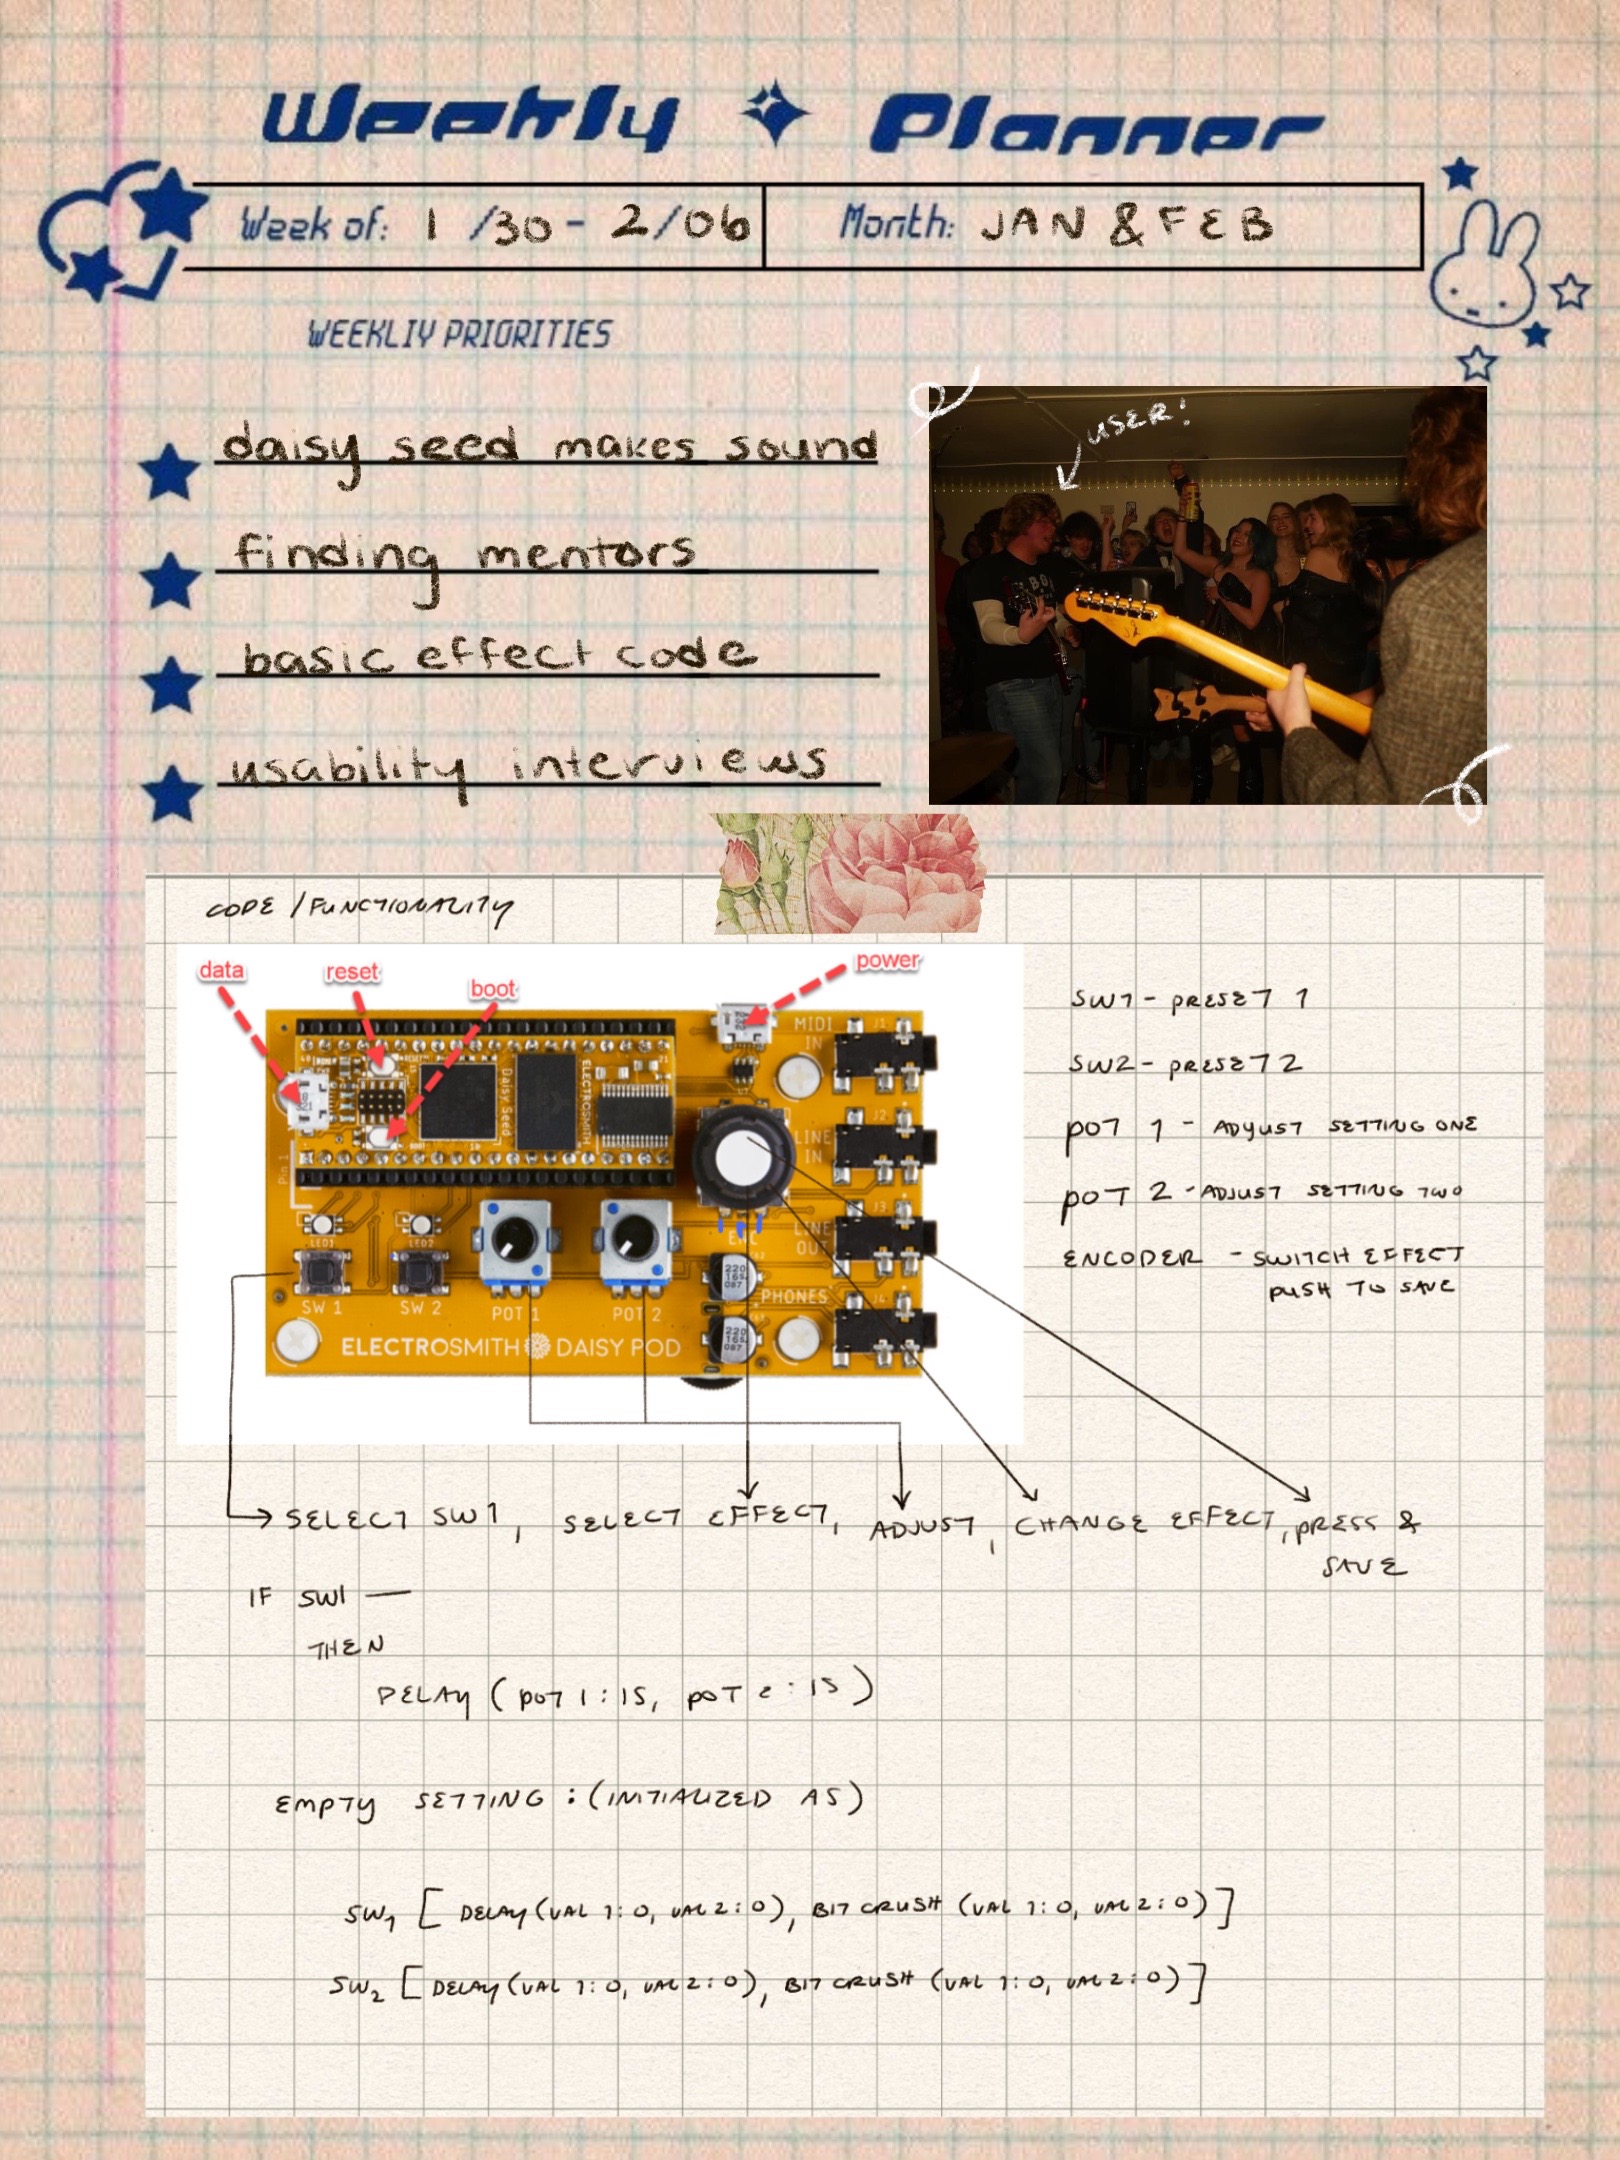 Weekly Planner
Week of: 1/30 - 2/06
Month: JAN & FEB
WEEKLIY PRIORITIES
daisy seed makes sound
finding mentors
basic effect code
usability interviews
USER!
CODE / FUNCTIONALITY
data
reset
boot
power
MIDI IN
J1
J2
LINE IN
J3
LINE OUT
J4
PHONES
ENC
Daisy Seed
ELECTROSMITH
Pin 1
LED1
LED2
SW 1
SW 2
POT 1
POT 2
220
16S
087
220
16S
087
ELECTROSMITH DAISY POD
SW1 - PRESET 1
SW2 - PRESET 2
POT 1 - ADJUST SETTING ONE
POT 2 - ADJUST SETTING TWO
ENCODER - SWITCH EFFECT
PUSH TO SAVE
SELECT SW1, SELECT EFFECT, ADJUST, CHANGE EFFECT, PRESS &
SAVE
IF SW1 —
THEN
DELAY (POT 1 : 15, POT 2 : 15)
EMPTY SETTING : (INITIALIZED AS)
SW1 [ DELAY (VAL 1: 0, VAL 2: 0), BIT CRUSH (VAL 1: 0, VAL 2: 0) ]
SW2 [ DELAY (VAL 1: 0, VAL 2: 0), BIT CRUSH (VAL 1: 0, VAL 2: 0) ]